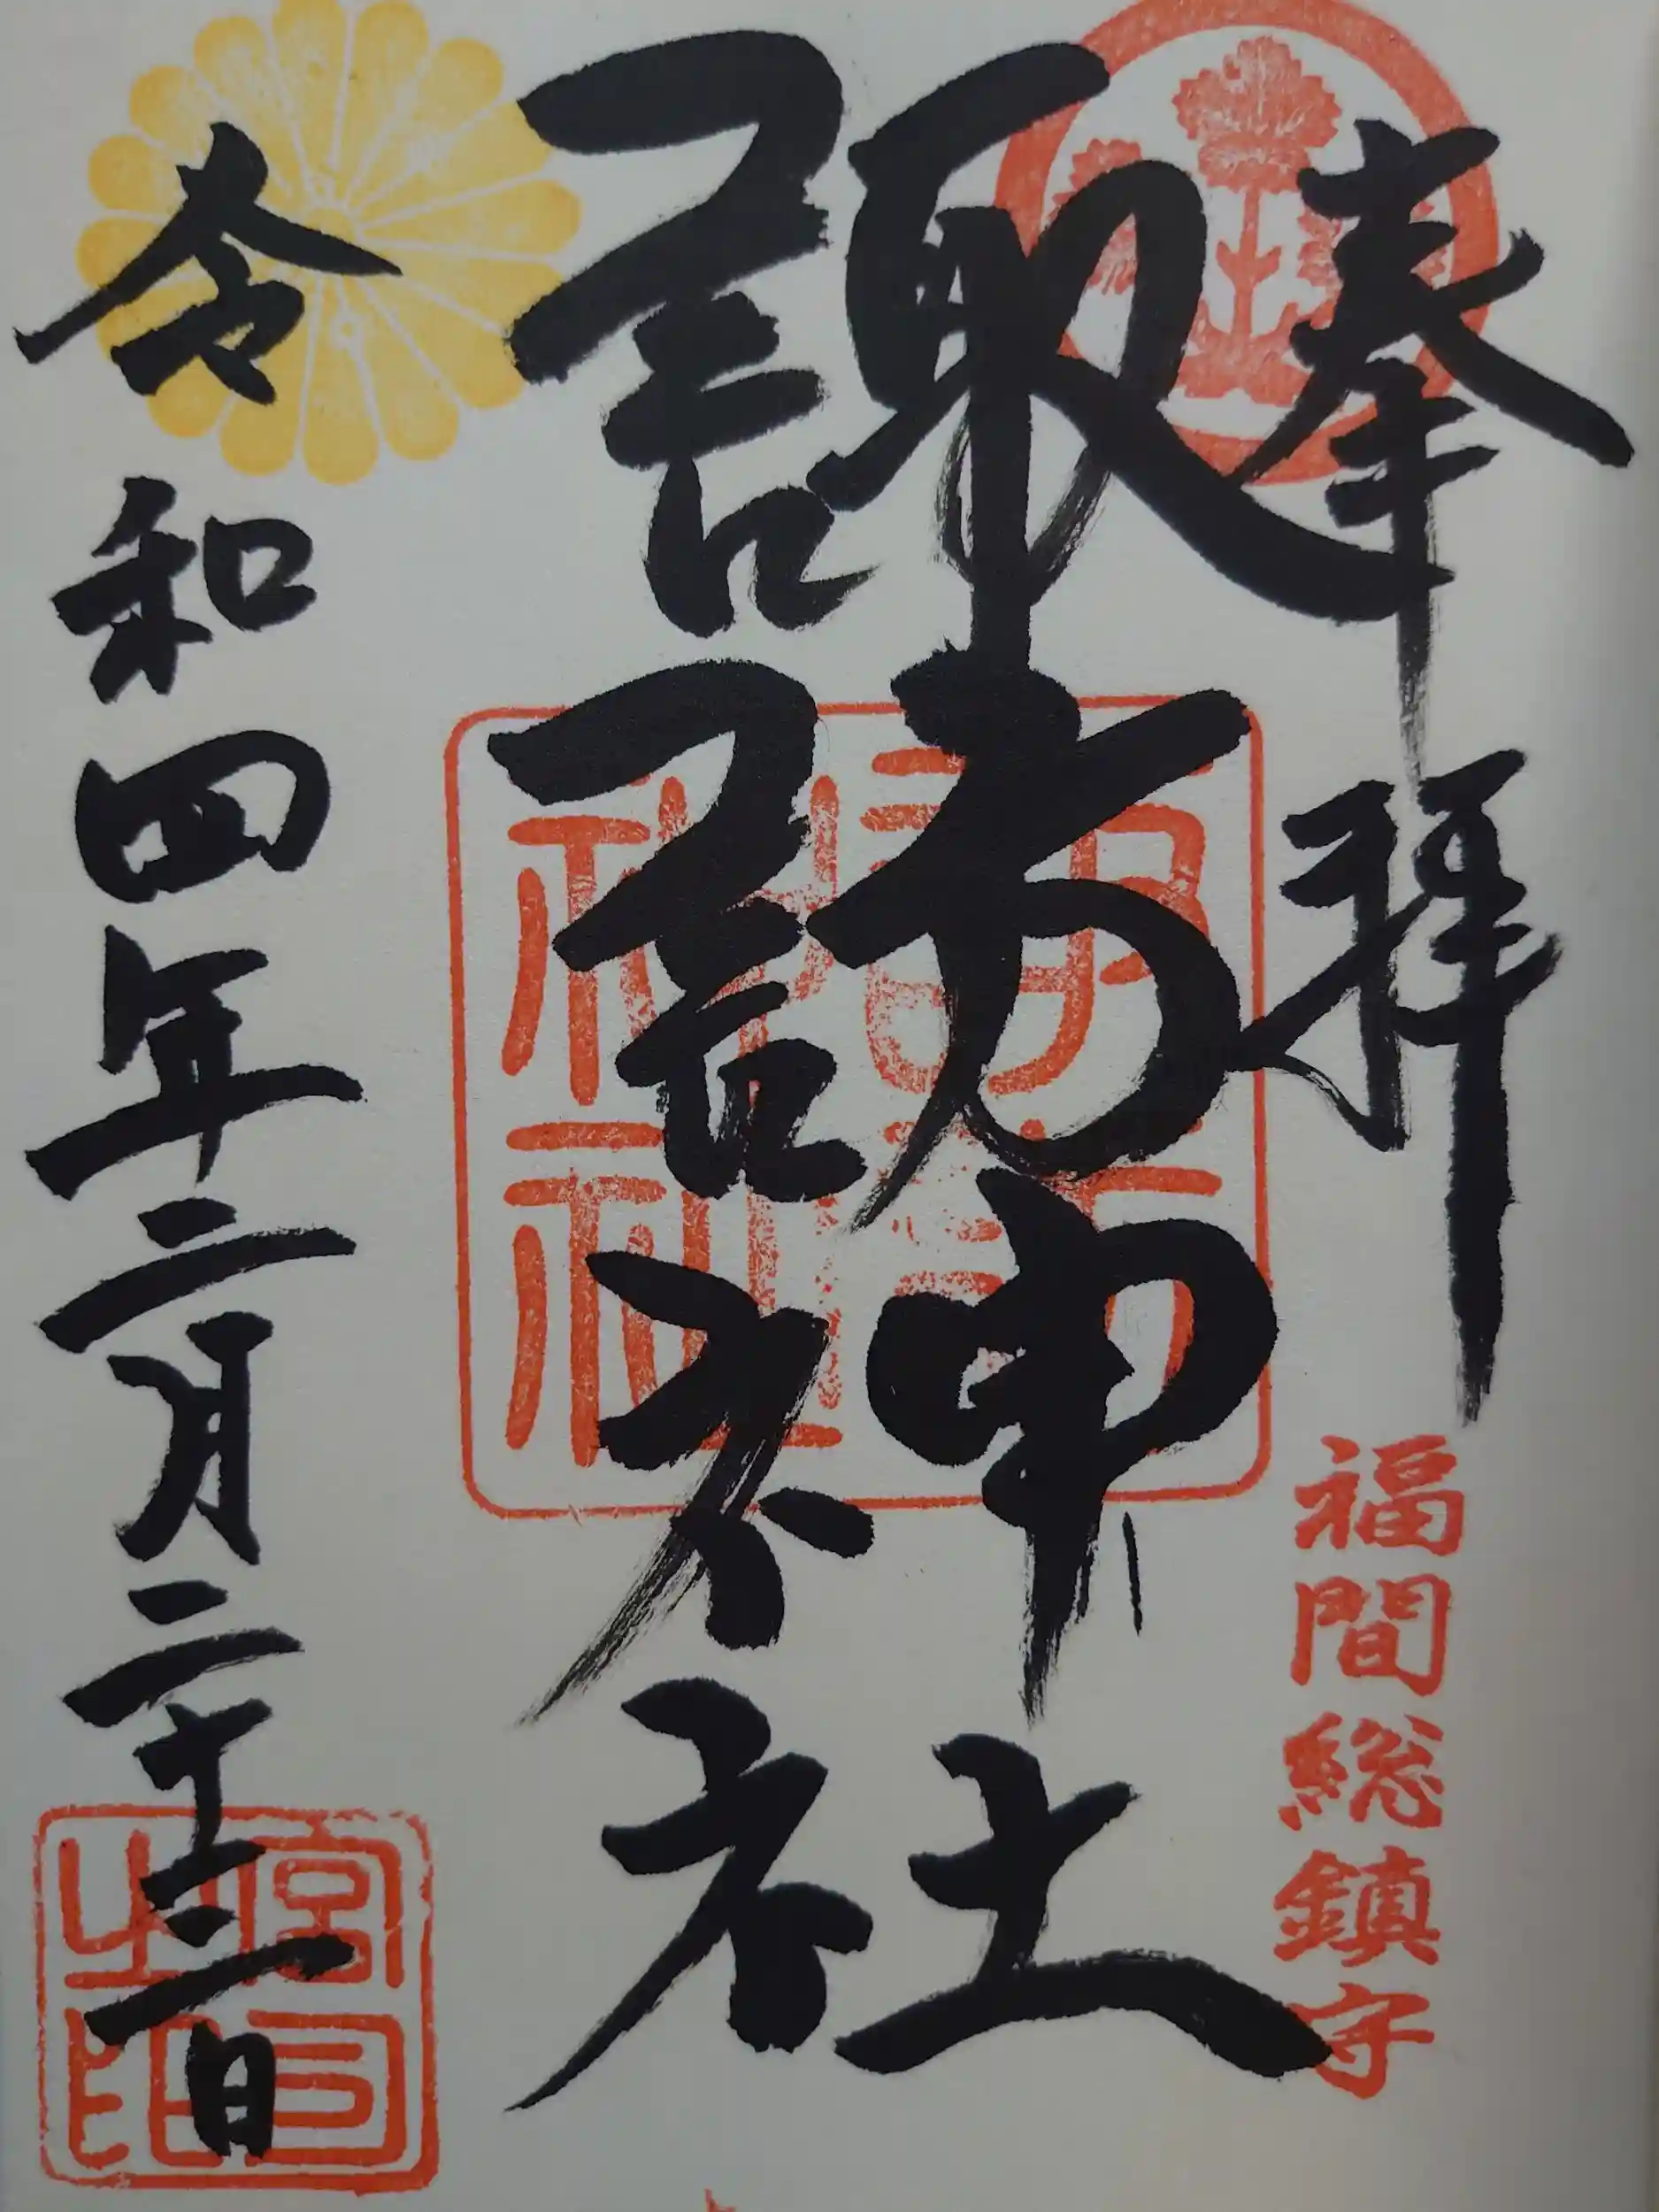 奉拝
福間総鎮守
諏訪神社
諏訪
神社
令和四年二月二十三日
宮司
之印